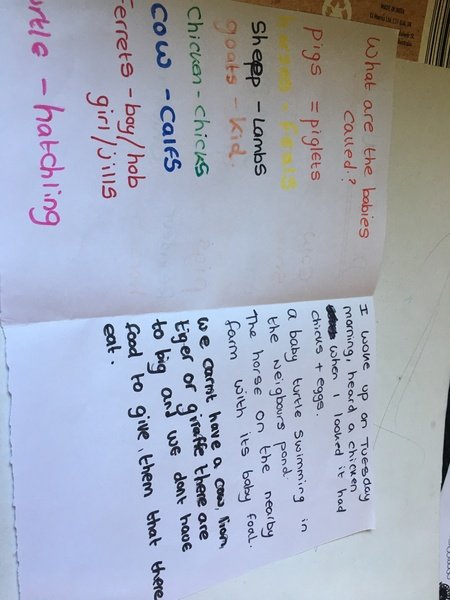 MADE IN INDIA
What are the babies
called.?
pigs = piglets
Sheepp - Lambs
goats - kid.
Chicken - chicks
Cow - calfs
Ferrets - boy/hob
girl/jills
urtle - hatchling
I woke up on Tuesday
morning, heard a chicken
when I looked it had
chicks + eggs.
a baby turtle swimming in
the neigbours pond.
The horse on the nearby
farm with its baby foal.
we carnt have a cow,
tiger or giraffe there are
to big and we dont have
food to give them that there
eat.